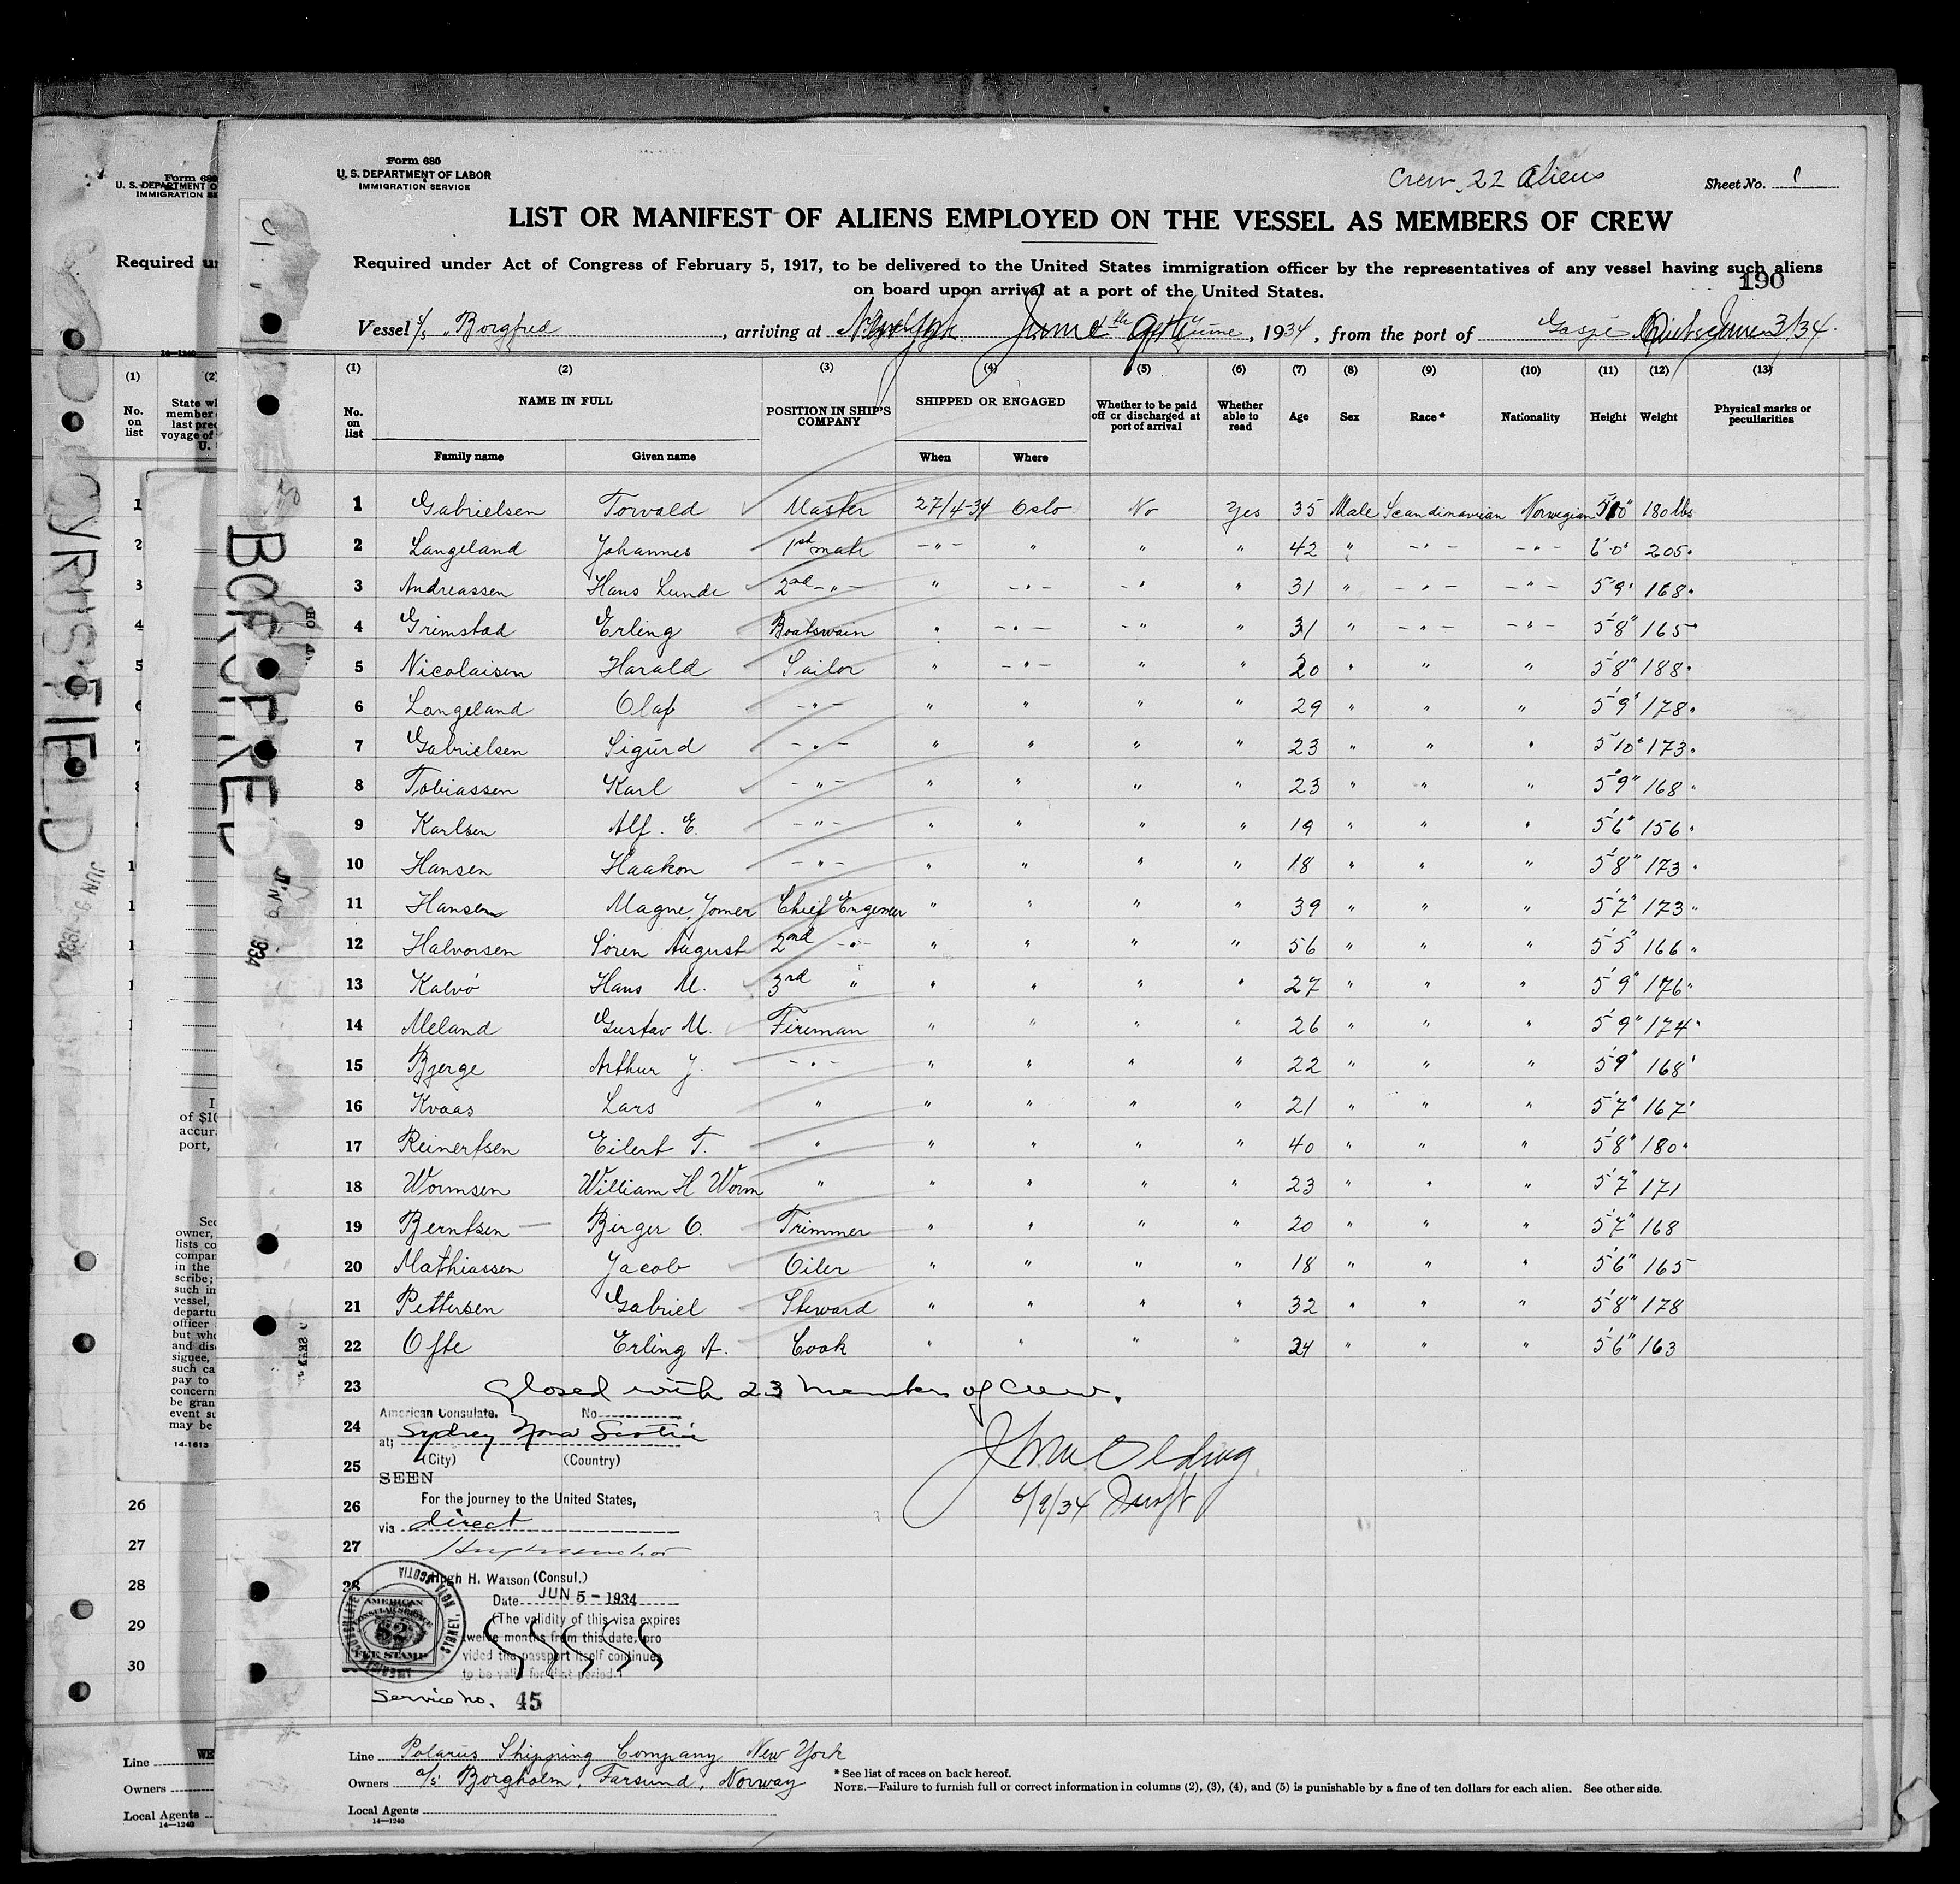 Form 680
U. S. DEPARTMENT OF LABOR
IMMIGRATION SERVICE
Crew, 22 Aliens
Sheet No. 1
LIST OR MANIFEST OF ALIENS EMPLOYED ON THE VESSEL AS MEMBERS OF CREW
Required under Act of Congress of February 5, 1917, to be delivered to the United States immigration officer by the representatives of any vessel having such aliens
on board upon arrival at a port of the United States.
190
Vessel s/s "Borgfred , arriving at June , 1934 , from the port of Gaspé June 3/34.
(1) (2) (3) (4) (5) (6) (7) (8) (9) (10) (11) (12) (13)
No. on list NAME IN FULL POSITION IN SHIP'S COMPANY SHIPPED OR ENGAGED Whether to be paid off or discharged at port of arrival Whether able to read Age Sex Race* Nationality Height Weight Physical marks or peculiarities
Family name Given name When Where
1 Gabrielsen Torvald Master 27/4-34 Oslo No Yes 35 Male Scandinavian Norwegian 5'10" 180 lbs
2 Langeland Johannes 1st mate -"- " " " 42 " -"- -"- 6'0" 205"
3 Andreassen Hans Lunde 2nd -"- " -"- -" " 31 " -"- -"- 5'9" 168"
4 Grimstad Erling Boatswain " -"- -" " 31 " -"- -"- 5'8" 165"
5 Nicolaisen Harald Sailor " -"- " " 20 " " " 5'8" 188"
6 Langeland Olaf -"- " " " " 29 " " " 5'9" 178"
7 Gabrielsen Sigurd -"- " " " " 23 " " " 5'10" 173"
8 Tobiassen Karl -"- " " " " 23 " " " 5'9" 168"
9 Karlsen Alf. E. -"- " " " " 19 " " " 5'6" 156"
10 Hansen Haakon -"- " " " " 18 " " " 5'8" 173"
11 Hansen Magne, Jomer Chief Engineer " " " " 39 " " " 5'7" 173"
12 Halvorsen Sören August 2nd -"- " " " " 56 " " " 5'5" 166"
13 Kalvö Hans M. 3rd " " " " " 27 " " " 5'9" 176"
14 Meland Gustav M. Fireman " " " " 26 " " " 5'9" 174"
15 Bjerge Arthur J. -"- " " " " 22 " " " 5'9" 168"
16 Kvaas Lars " " " " " 21 " " " 5'7" 167"
17 Reinertsen Eilert T. " " " " " 40 " " " 5'8" 180"
18 Wormsen William H Worm " " " " " 23 " " " 5'7" 171
19 Berntsen Birger O. Trimmer " " " " 20 " " " 5'7" 168
20 Mathiassen Jacob Oiler " " " " 18 " " " 5'6" 165
21 Pettersen Gabriel Steward " " " " 32 " " " 5'8" 178
22 Ofte Erling A. Cook " " " " 24 " " " 5'6" 163
23 Closed with 23 members of crew.
24
25
26
27
28
29
30
American Consulate. No
at Sydney Nova Scotia
(City) (Country)
SEEN
For the journey to the United States,
via direct
Hugh H. Watson (Consul.)
Date JUN 5 - 1934
(The validity of this visa expires
twelve months from this date, pro
vided the passport itself continues
to be valid for that period.)
Service No. 45
6/9/34
AMERICAN
CONSULAR SERVICE
$2
FEE STAMP
Line Polarus Shipping Company New York
Owners A/s Borgholm, Farsund, Norway
Local Agents
14—1240
* See list of races on back hereof.
NOTE.—Failure to furnish full or correct information in columns (2), (3), (4), and (5) is punishable by a fine of ten dollars for each alien. See other side.
BORGFRED
JUN 9 1934
CYRUS FIELD
JUN 9 - 1934
Form 680
U. S. DEPARTMENT O
IMMIGRATION SE
Required un
14—1240
(1) (2)
No. on list
State wh
member
last prec
voyage of
U.
1
2
3
4
5
26
27
28
29
30
of $10
accur
port,
Sec
owner,
lists co
compan
in the
scribe;
such in
vessel,
departu
officer
but who
and dis
signee,
such ca
pay to
concern
be gran
event su
may be
14-1613
Line
Owners
Local Agents
14—1240